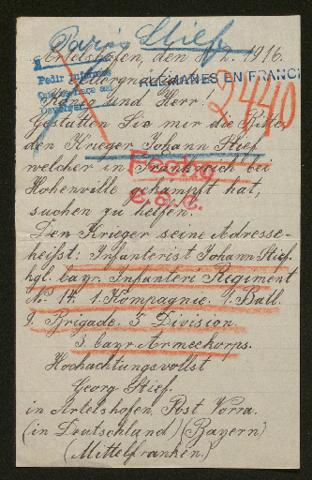 Paris Stief
Artelshofen, den 2. 1916.
Pedir informes
ALEMANES EN FRANCI
2440
König und Herr!
Gestatten Sie mir die Bitte
den Krieger Johann Stief
welcher in Frankreich bei
Hohenville gekämpft hat,
suchen zu helfen.
Den Krieger seine Adresse
heißt: Infanterist Johann Stief
kgl. bayr. Infanteri Regiment
No 14. 1. Kompagnie. 1. Batl.
9. Brigade. 5. Division.
3. bayr. Armeekorps.
Hochachtungsvollst
Georg Stief.
in Artelshofen, Post Vorra.
(in Deutschland) (Bayern)
(Mittelfranken.)